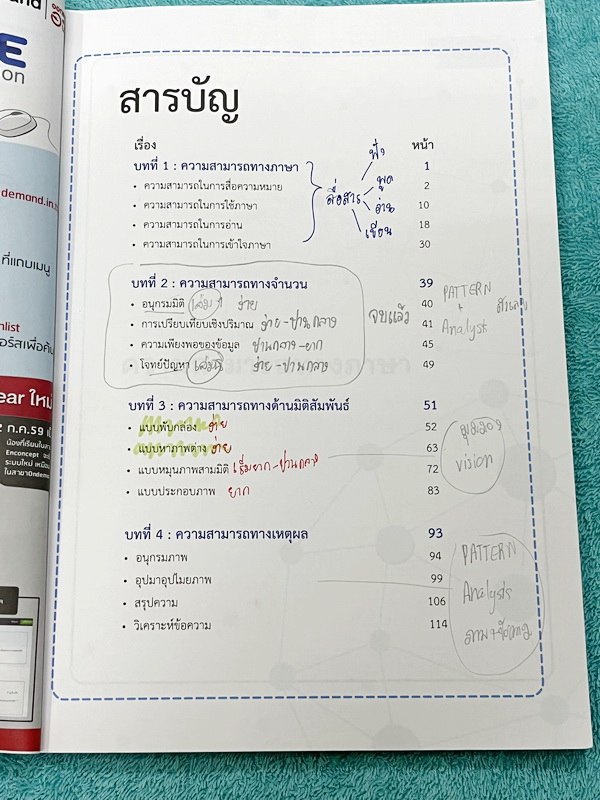 สารบัญ
เรื่อง หน้า
บทที่ 1 : ความสามารถทางภาษา 1
• ความสามารถในการสื่อความหมาย 2
• ความสามารถในการใช้ภาษา 10
• ความสามารถในการอ่าน 18
• ความสามารถในการเข้าใจภาษา 30
สื่อสาร
ฟัง
พูด
อ่าน
เขียน
บทที่ 2 : ความสามารถทางจำนวน 39
• อนุกรมมิติ ง่าย 40
• การเปรียบเทียบเชิงปริมาณ ง่าย-ปานกลาง 41
• ความเพียงพอของข้อมูล ปานกลาง-ยาก 45
• โจทย์ปัญหา ง่าย-ปานกลาง 49
จบแล้ว
PATTERN
+
Analysis
บทที่ 3 : ความสามารถทางด้านมิติสัมพันธ์ 51
• แบบพับกล่อง ง่าย 52
• แบบหาภาพต่าง ง่าย 63
• แบบหมุนภาพสามมิติ เริ่มยาก-ปานกลาง 72
• แบบประกอบภาพ ยาก 83
มุมมอง
vision
บทที่ 4 : ความสามารถทางเหตุผล 93
• อนุกรมภาพ 94
• อุปมาอุปไมยภาพ 99
• สรุปความ 106
• วิเคราะห์ข้อความ 114
PATTERN
Analysis
E
on
demand.in.
ที่แถบเมนู
nlist
อร์สเพื่อค้น
ear ใหม่
2 ก.ค.59
น้องที่เรียนใน
Enconcept
ระบบใหม่ เหมือน
ในสาขาOndem